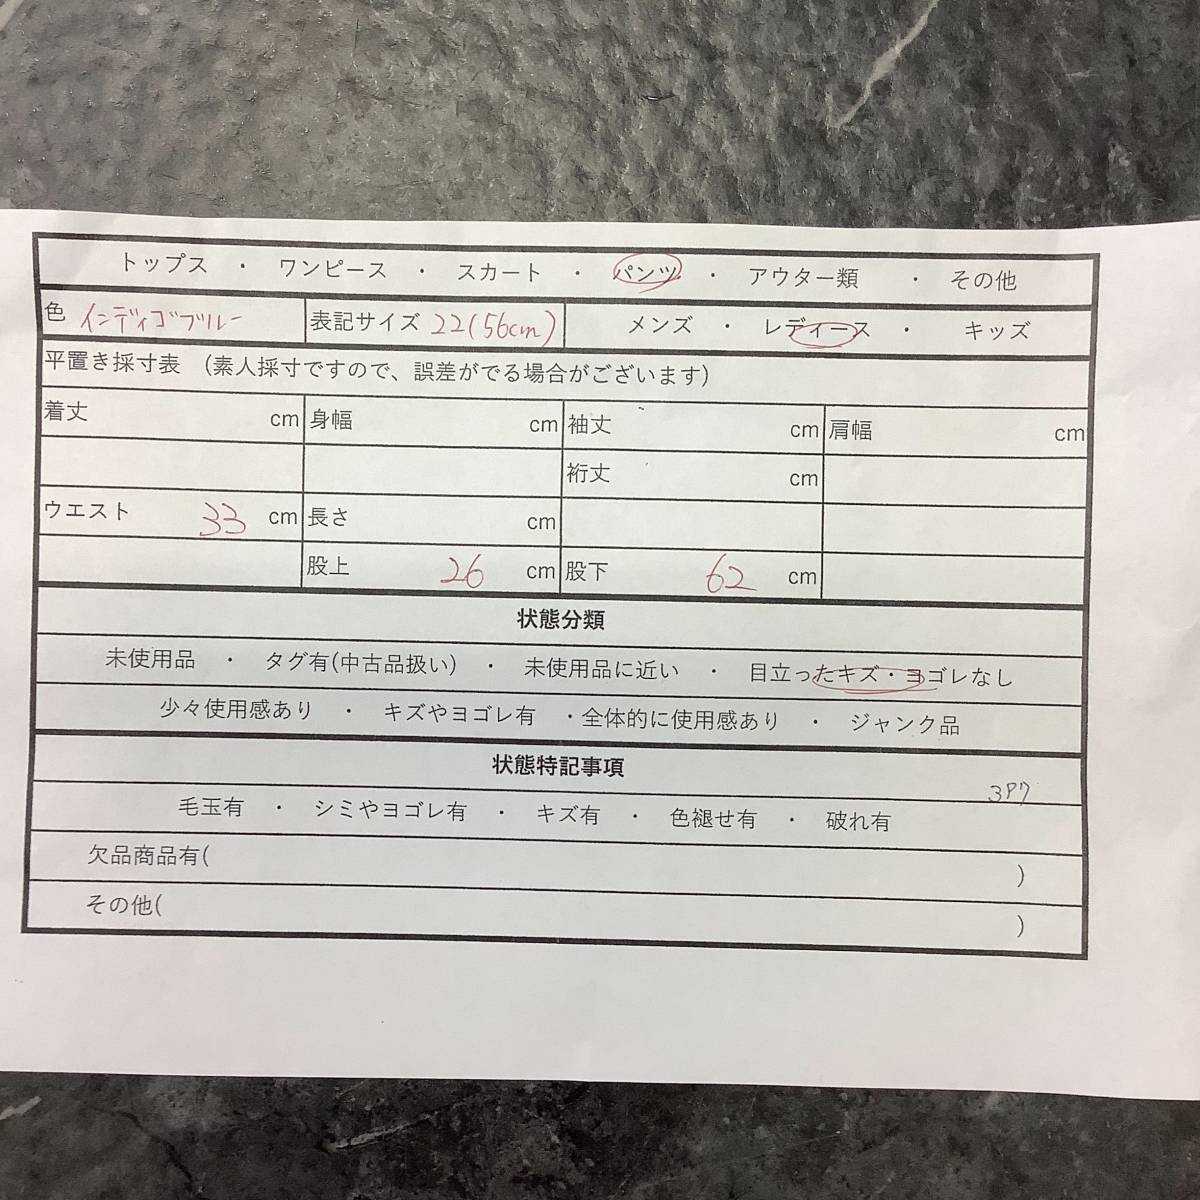 トップス ・ ワンピース ・ スカート ・ パンツ ・ アウター類 ・ その他
色 インディゴブルー 表記サイズ 22(56cm) メンズ ・ レディース ・ キッズ
平置き採寸表 (素人採寸ですので、誤差がでる場合がございます)
着丈 cm 身幅 cm 袖丈 cm 肩幅 cm
裄丈 cm
ウエスト 33 cm 長さ cm
股上 26 cm 股下 62 cm
状態分類
未使用品 ・ タグ有(中古品扱い) ・ 未使用品に近い ・ 目立ったキズ・ヨゴレなし
少々使用感あり ・ キズやヨゴレ有 ・全体的に使用感あり ・ ジャンク品
状態特記事項
毛玉有 ・ シミやヨゴレ有 ・ キズ有 ・ 色褪せ有 ・ 破れ有
欠品商品有( )
その他( )